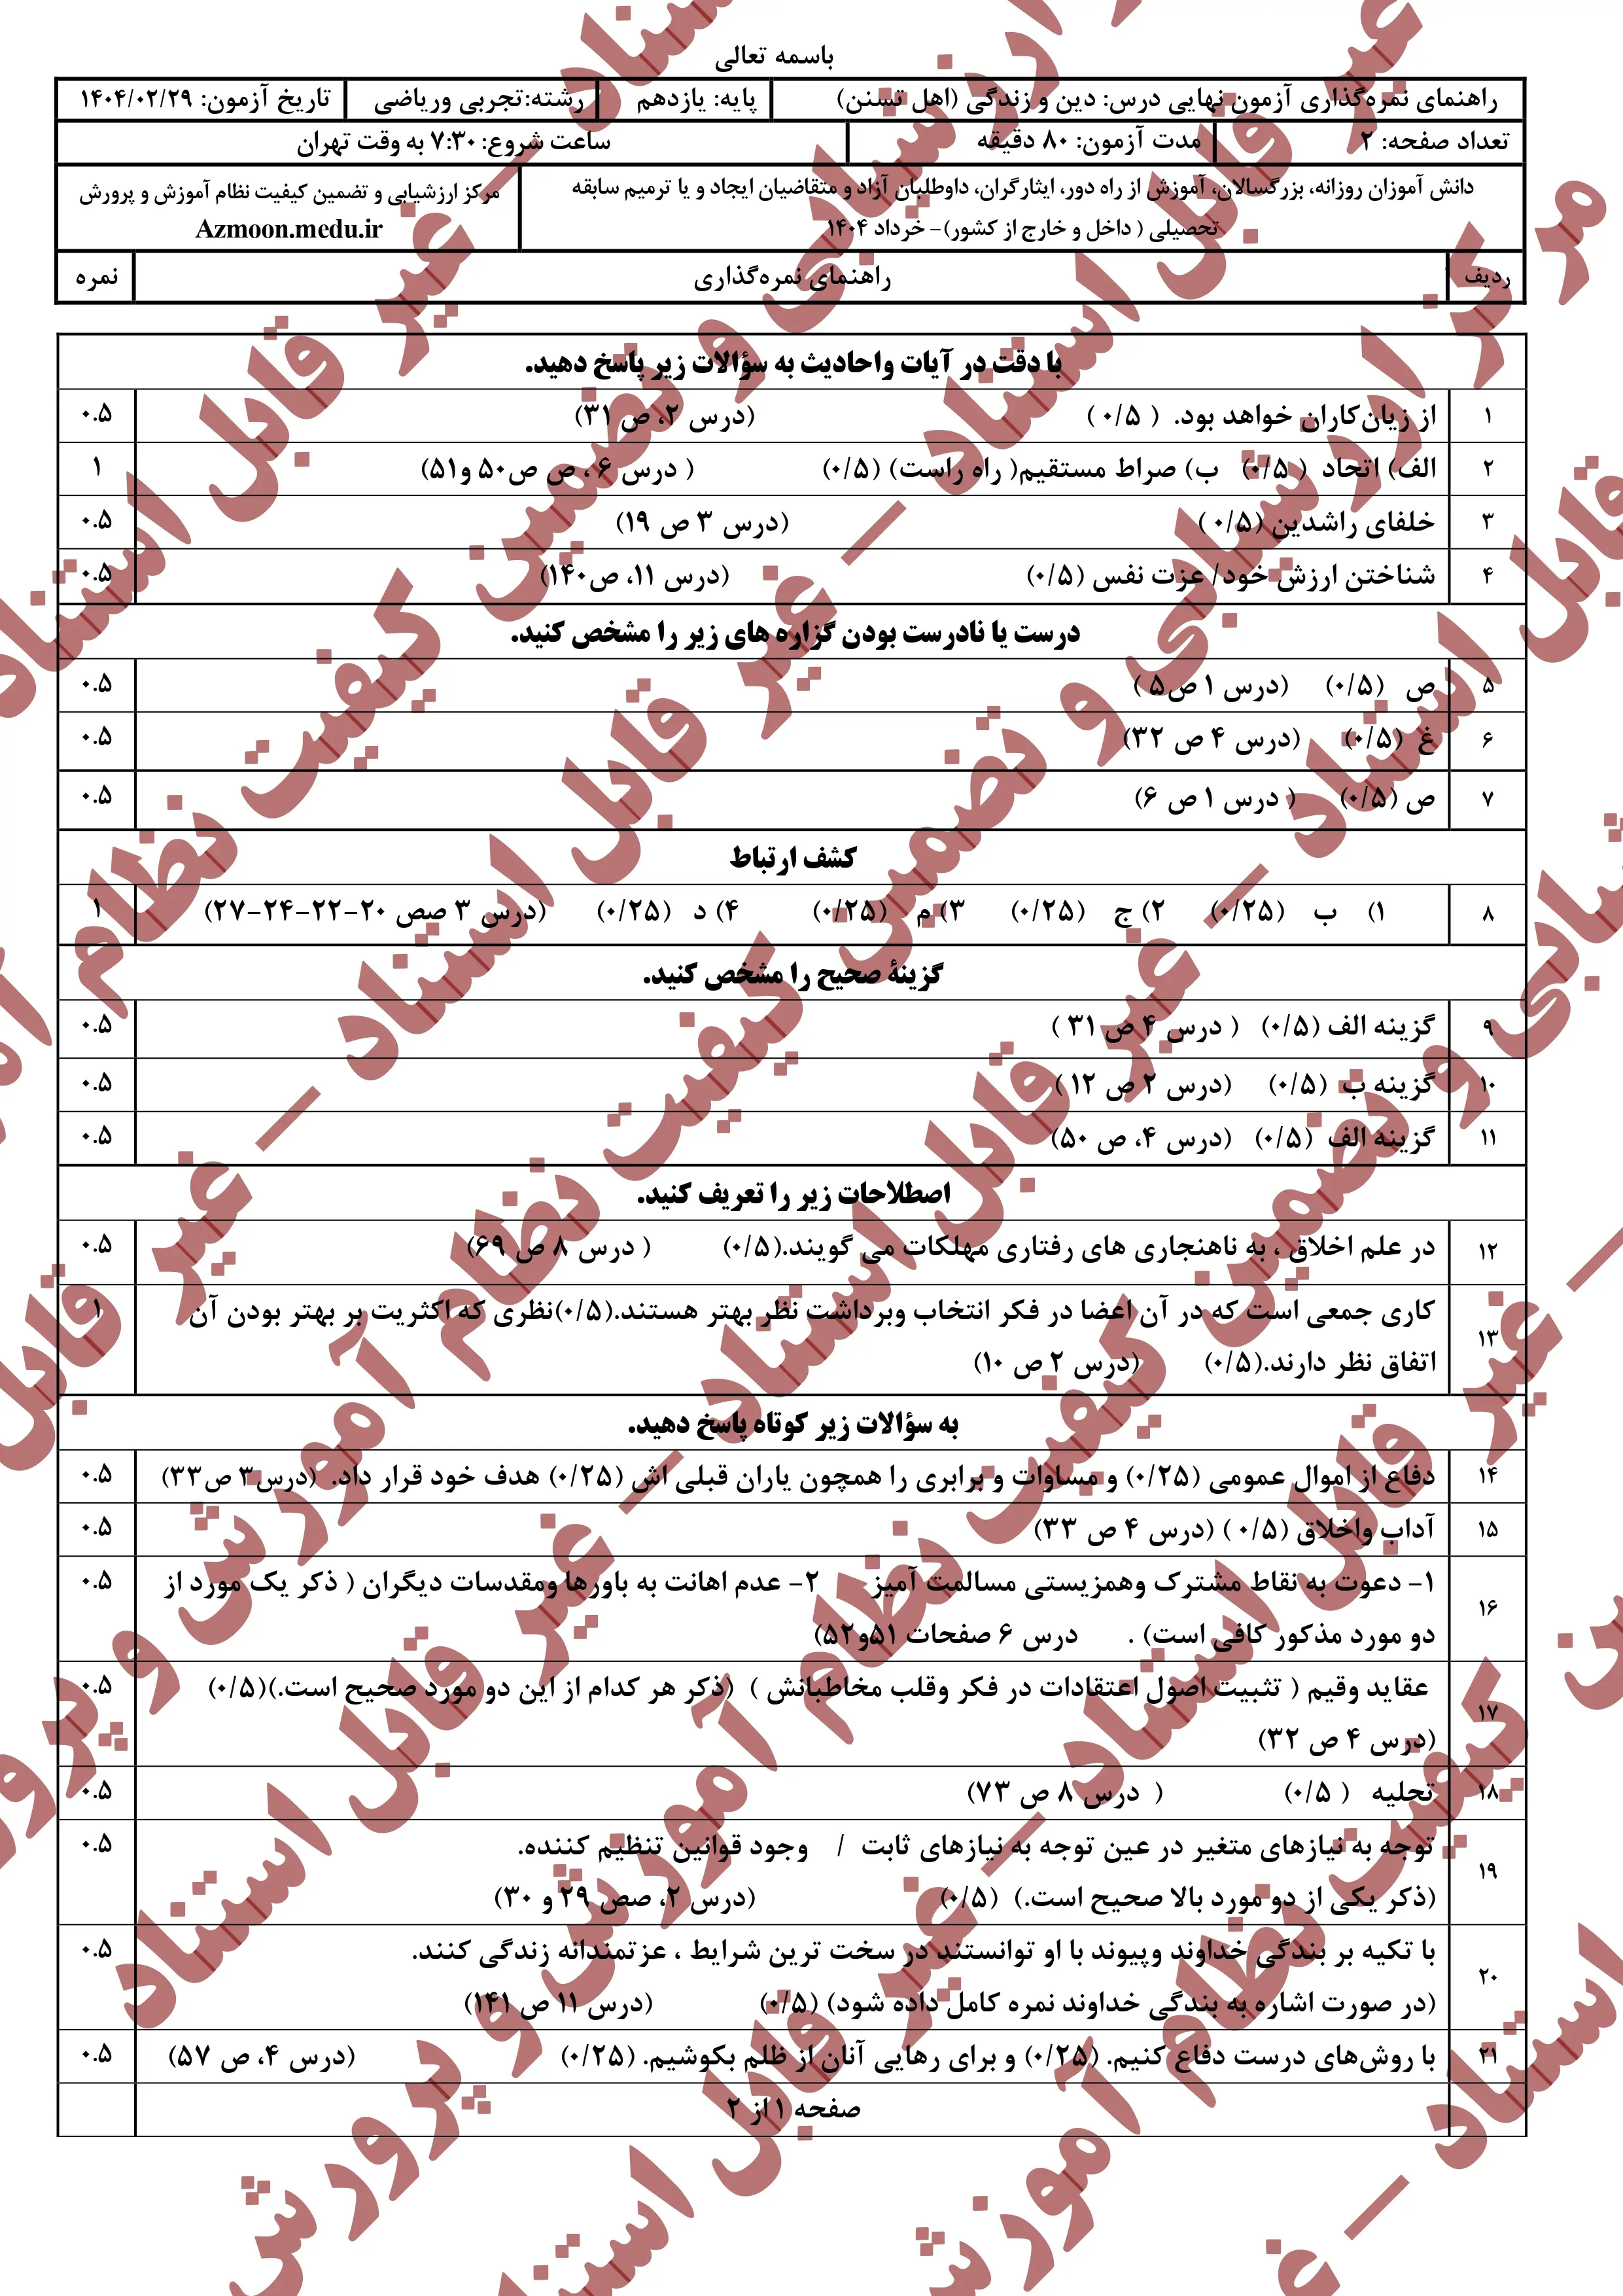 باسمه تعالی
راهنمای نمره‌گذاری آزمون نهایی درس: دین و زندگی (اهل تسنن) پایه: یازدهم رشته:تجربی وریاضی تاریخ آزمون: ۱۴۰۴/۰۲/۲۹
تعداد صفحه: ۲ مدت آزمون: ۸۰ دقیقه ساعت شروع: ۷:۳۰ به وقت تهران
دانش آموزان روزانه، بزرگسالان، آموزش از راه دور، ایثارگران، داوطلبان آزاد و متقاضیان ایجاد و یا ترمیم سابقه
تحصیلی ( داخل و خارج از کشور)- خرداد ۱۴۰۴
مرکز ارزشیابی و تضمین کیفیت نظام آموزش و پرورش
Azmoon.medu.ir
ردیف راهنمای نمره‌گذاری نمره
با دقت در آیات واحادیث به سؤالات زیر پاسخ دهید.
۱ از زیان‌کاران خواهد بود. ( ۰/۵ ) (درس ۲، ص ۳۱) ۰.۵
۲ الف) اتحاد ( ۰/۵) ب) صراط مستقیم( راه راست) (۰/۵) ( درس ۶ ، ص ص۵۰ و۵۱) ۱
۳ خلفای راشدین (۰/۵ ) (درس ۳ ص ۱۹) ۰.۵
۴ شناختن ارزش خود/ عزت نفس (۰/۵) (درس ۱۱، ص۱۴۰) ۰.۵
درست یا نادرست بودن گزاره های زیر را مشخص کنید.
۵ ص (۰/۵) (درس ۱ ص۵ ) ۰.۵
۶ غ (۰/۵) (درس ۴ ص ۳۲) ۰.۵
۷ ص (۰/۵) ( درس ۱ ص ۶) ۰.۵
کشف ارتباط
۸ ۱) ب (۰/۲۵) ۲) ج (۰/۲۵) ۳) م (۰/۲۵) ۴) د (۰/۲۵) (درس ۳ صص ۲۰-۲۲-۲۴-۲۷) ۱
گزینهٔ صحیح را مشخص کنید.
۹ گزینه الف (۰/۵) ( درس ۴ ص ۳۱ ) ۰.۵
۱۰ گزینه ب (۰/۵) (درس ۲ ص ۱۲ ) ۰.۵
۱۱ گزینه الف (۰/۵) (درس ۴، ص ۵۰) ۰.۵
اصطلاحات زیر را تعریف کنید.
۱۲ در علم اخلاق ، به ناهنجاری های رفتاری مهلکات می گویند.(۰/۵) ( درس ۸ ص ۶۹) ۰.۵
۱۳ کاری جمعی است که در آن اعضا در فکر انتخاب وبرداشت نظر بهتر هستند.(۰/۵)نظری که اکثریت بر بهتر بودن آن ۱
اتفاق نظر دارند.(۰/۵) (درس ۲ ص ۱۰)
به سؤالات زیر کوتاه پاسخ دهید.
۱۴ دفاع از اموال عمومی (۰/۲۵) و مساوات و برابری را همچون یاران قبلی اش (۰/۲۵) هدف خود قرار داد. (درس ۳ ص۳۳) ۰.۵
۱۵ آداب واخلاق (۰/۵ ) (درس ۴ ص ۳۳) ۰.۵
۱۶ ۱- دعوت به نقاط مشترک وهمزیستی مسالمت آمیز ۲- عدم اهانت به باورها ومقدسات دیگران ( ذکر یک مورد از ۰.۵
دو مورد مذکور کافی است) . درس ۶ صفحات ۵۱و۵۲)
۱۷ عقاید وقیم ( تثبیت اصول اعتقادات در فکر وقلب مخاطبانش ) (ذکر هر کدام از این دو مورد صحیح است.)(۰/۵) ۰.۵
(درس ۴ ص ۳۲)
۱۸ تحلیه ( ۰/۵) ( درس ۸ ص ۷۳) ۰.۵
۱۹ توجه به نیازهای متغیر در عین توجه به نیازهای ثابت / وجود قوانین تنظیم کننده. ۰.۵
(ذکر یکی از دو مورد بالا صحیح است.) (۰/۵) (درس ۲، صص ۲۹ و ۳۰)
۲۰ با تکیه بر بندگی خداوند وپیوند با او توانستند در سخت ترین شرایط ، عزتمندانه زندگی کنند. ۰.۵
(در صورت اشاره به بندگی خداوند نمره کامل داده شود) (۰/۵) (درس ۱۱ ص ۱۴۱)
۲۱ با روش‌های درست دفاع کنیم. (۰/۲۵) و برای رهایی آنان از ظلم بکوشیم. (۰/۲۵) (درس ۴، ص ۵۷) ۰.۵
صفحه ۱ از ۲
مرکز ارزشیابی و تضمین کیفیت نظام آموزش و پرورش – غیر قابل استناد